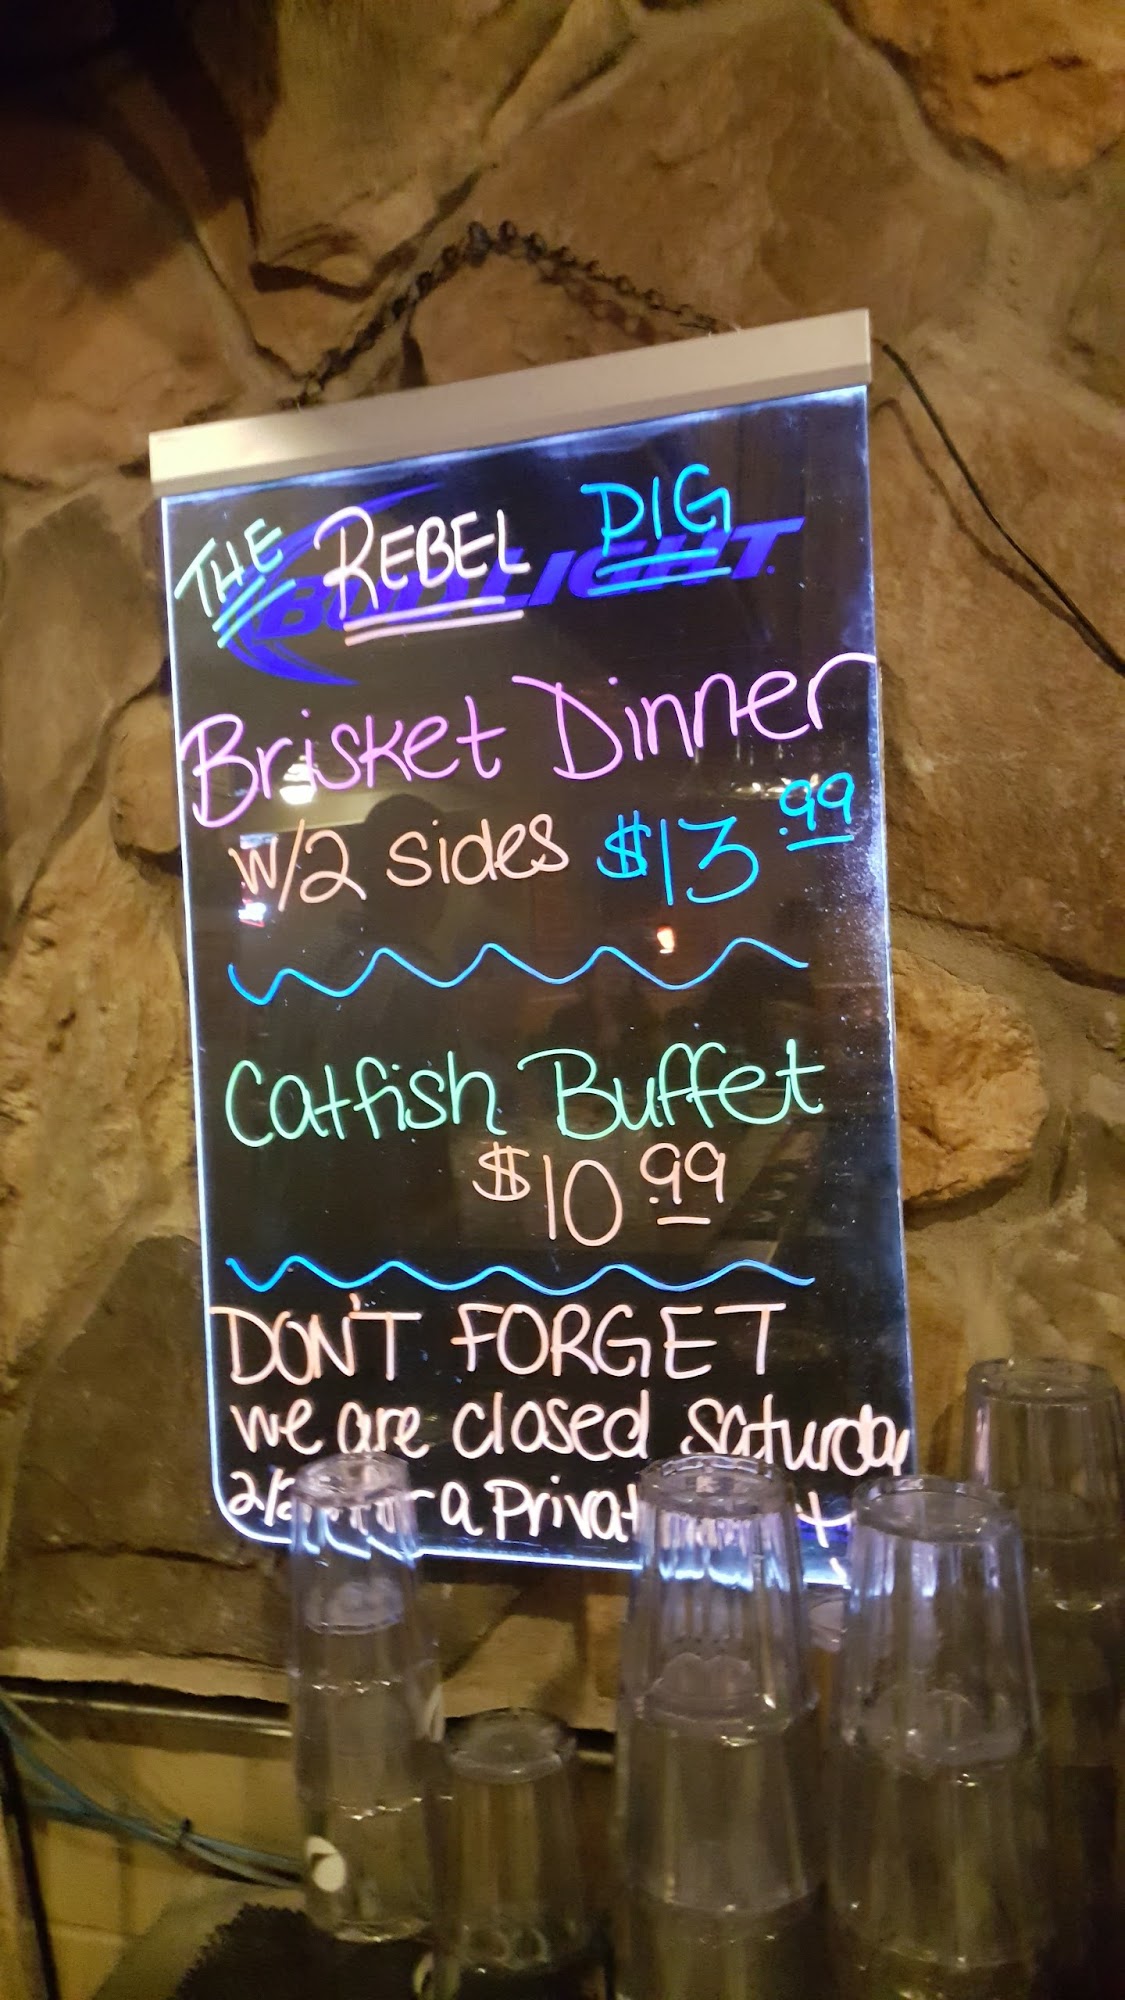 THE REBEL PIG
BUD LIGHT
Brisket Dinner
w/2 sides $13.99
Catfish Buffet
$10.99
DON'T FORGET
we are closed Saturday
a